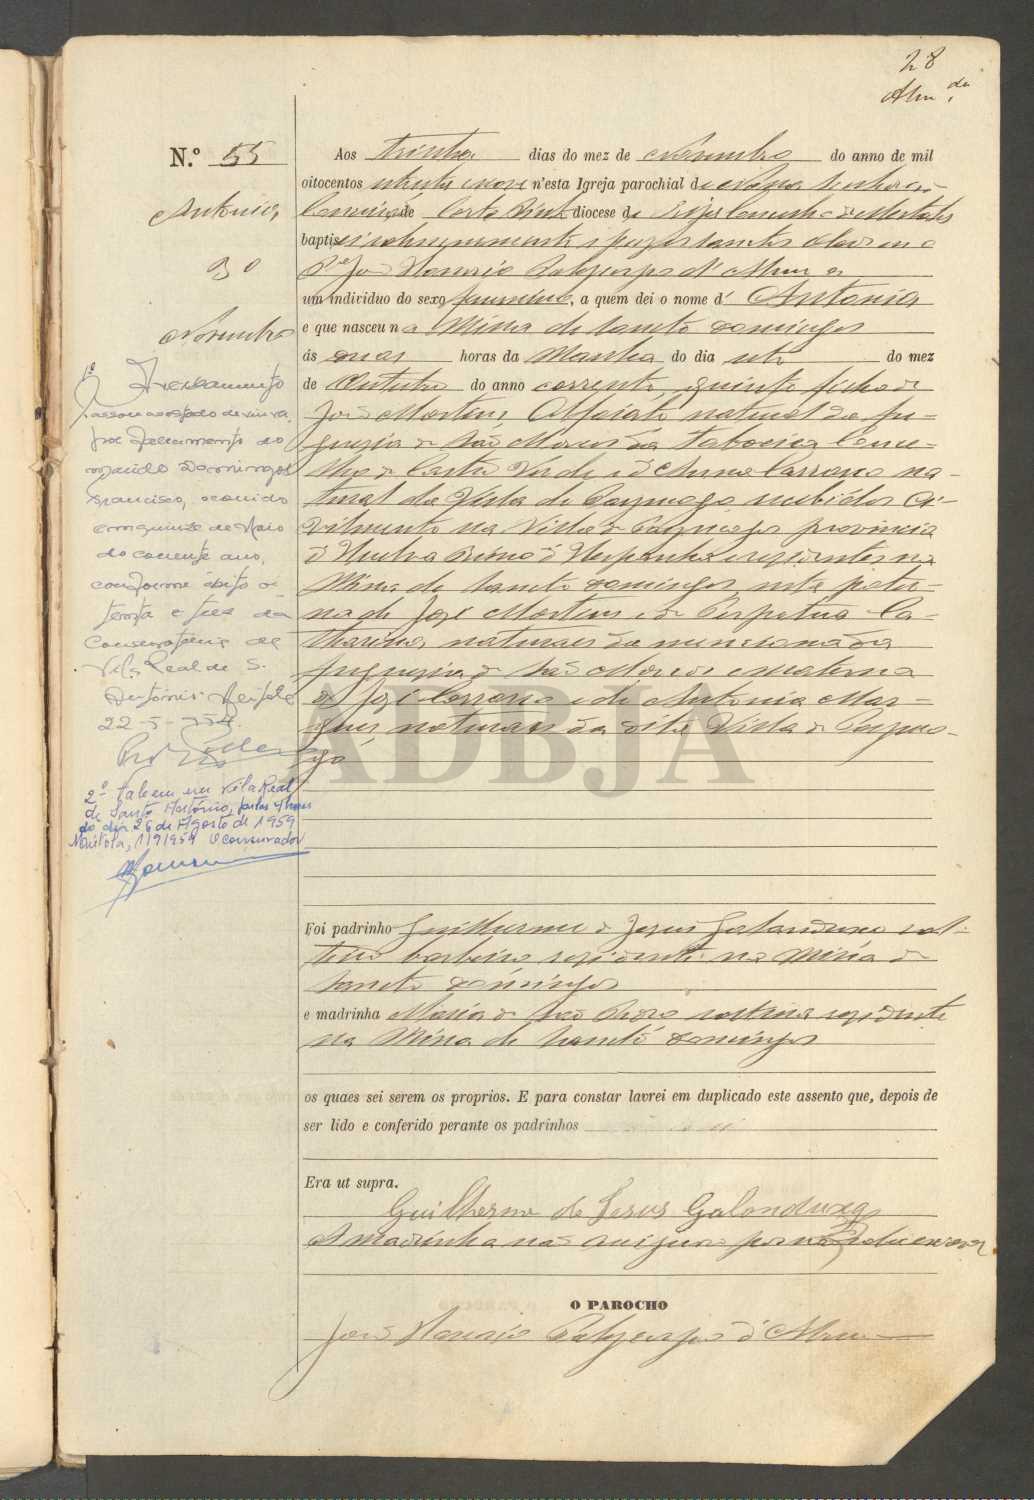 28
N.º 55
Antonia
30
Novembro
Aos trinta dias do mez de Novembro do anno de mil
oitocentos oitenta e nove n'esta Igreja parochial de Nossa Senhora da
Conceição de Corte Pinto diocese de Beja Concelho de Mertola
baptisei solemnemente e puz os sanctos oleos eu o
P.e João Nazario d'
um individuo do sexo feminino, a quem dei o nome d' Antonia
e que nasceu na Mina de Sancto Domingos
ás duas horas da Manhã do dia oito do mez
de Outubro do anno corrente, quinto filho de
José Martins Alfaiate natural da fre-
guezia de São Marcos da Taboeira Conce-
lho de Castro Verde e d'Anna Carrasco na-
tural da Villa de Paymogo recebidos ci-
vilmente na Villa de Paymogo provincia
d'Huelva Reino d'Hespanha e residentes na
Mina de Sancto Domingos, neta pater-
na de José Martins e de Perpetua Ca-
tharina, naturaes da mencionada
freguezia de São Marcos e materna
de José Carrasco e de Antonia Mar-
ques naturaes da dita Villa de Paymo-
go
1º
passou ao estado de viuva
por falecimento do
marido Domingos
Francisco, ocorrido
em quinze de Maio
do corrente ano,
conforme óbito
trinta e três da
Conservatória de
Vila Real de S.
António
22-5-954.
2º Faleceu em Vila Real
de Santo António, pelas horas
do dia 26 de Agosto de 1959
Mértola, 1 9 1959 O conservador
ADBJA
Foi padrinho Guilherme de Jesus Galanduxo sol-
teiro barbeiro residente na Mina de
Sancto Domingos
e madrinha Maria de São Pedro solteira residente
na Mina de Sancto Domingos
os quaes sei serem os proprios. E para constar lavrei em duplicado este assento que, depois de
ser lido e conferido perante os padrinhos
Era ut supra.
Guilherme de Jesus Galanduxo
A madrinha não assignou por não saber escrever
O PAROCHO
João Nazario d'